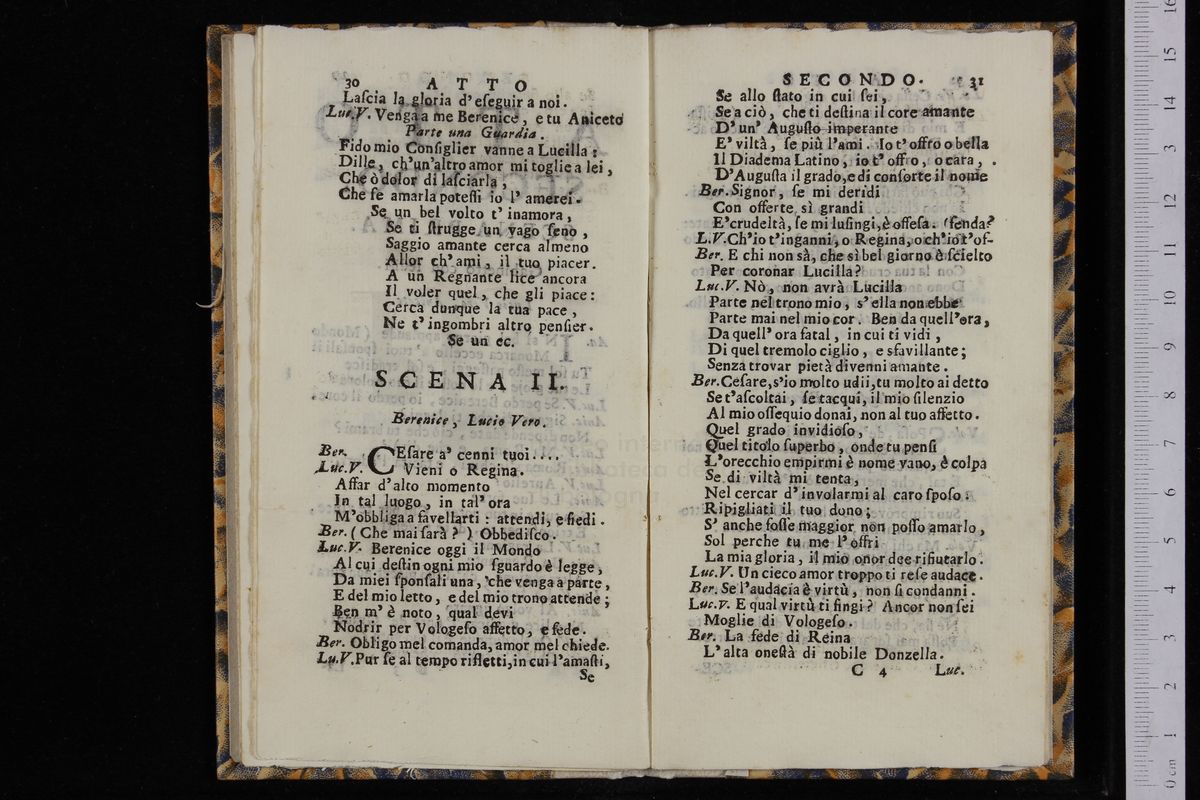 30 ATTO
Laſcia la gloria d' eſeguir a noi.
Luc.V. Venga a me Berenice, e tu Aniceto
Parte una Guardia.
Fido mio Conſiglier vanne a Lucilla:
Dille, ch'un'altro amor mi toglie a lei,
Che ò dolor di laſciarla,
Che ſe amarla poteſſi io l' amerei.
Se un bel volto t' inamora,
Se ti ſtrugge un vago ſeno,
Saggio amante cerca almeno
Allor ch' ami, il tuo piacer.
A un Regnante lice ancora
Il voler quel, che gli piace:
Cerca dunque la tua pace,
Ne t' ingombri altro penſier.
Se un ec.
SCENA II.
Berenice, Lucio Vero.
Ber. CEſare a' cenni tuoi....
Luc.V. Vieni o Regina.
Affar d'alto momento
In tal luogo, in tal' ora
M'obbliga a favellarti: attendi, e ſiedi.
Ber. (Che mai ſarà?) Obbediſco.
Luc.V. Berenice oggi il Mondo
Al cui deſtin ogni mio ſguardo è legge,
Da miei ſponſali una, che venga a parte,
E del mio letto, e del mio trono attende;
Ben m' è noto, qual devi
Nodrir per Vologeſo affetto, e fede.
Ber. Obligo mel comanda, amor mel chiede.
Lu.V. Pur ſe al tempo rifletti, in cui l'amaſti,
Se
SECONDO. 31
Se allo ſtato in cui ſei,
Se a ciò, che ti deſtina il core amante
D' un' Auguſto imperante
E' viltà, ſe più l'ami. Io t' offro o bella
Il Diadema Latino, io t' offro, o cara,
D'Auguſta il grado, e di conſorte il nome
Ber. Signor, ſe mi deridi
Con offerte sì grandi
E'crudeltà, ſe mi luſingi, è offeſa. (fenda?
L.V. Ch'io t'inganni, o Regina, o ch'io t'of-
Ber. E chi non sà, che sì bel giorno è ſcielto
Per coronar Lucilla?
Luc.V. Nò, non avrà Lucilla
Parte nel trono mio, s' ella non ebbe
Parte mai nel mio cor. Ben da quell'ora,
Da quell' ora fatal, in cui ti vidi,
Di quel tremolo ciglio, e sfavillante;
Senza trovar pietà divenni amante.
Ber. Ceſare, s'io molto udii, tu molto ai detto
Se t'aſcoltai, ſe tacqui, il mio ſilenzio
Al mio oſſequio donai, non al tuo affetto.
Quel grado invidioſo,
Quel titolo ſuperbo, onde tu penſi
L'orecchio empirmi è nome vano, è colpa
Se di viltà mi tenta,
Nel cercar d' involarmi al caro ſpoſo:
Ripigliati il tuo dono;
S' anche foſſe maggior non poſſo amarlo,
Sol perche tu me l' offri
La mia gloria, il mio onor dee rifiutarlo.
Luc.V. Un cieco amor troppo ti reſe audace.
Ber. Se l'audacia è virtù, non ſi condanni.
Luc.V. E qual virtù ti fingi? Ancor non ſei
Moglie di Vologeſo.
Ber. La fede di Reina
L' alta oneſtà di nobile Donzella.
C 4 Luc.